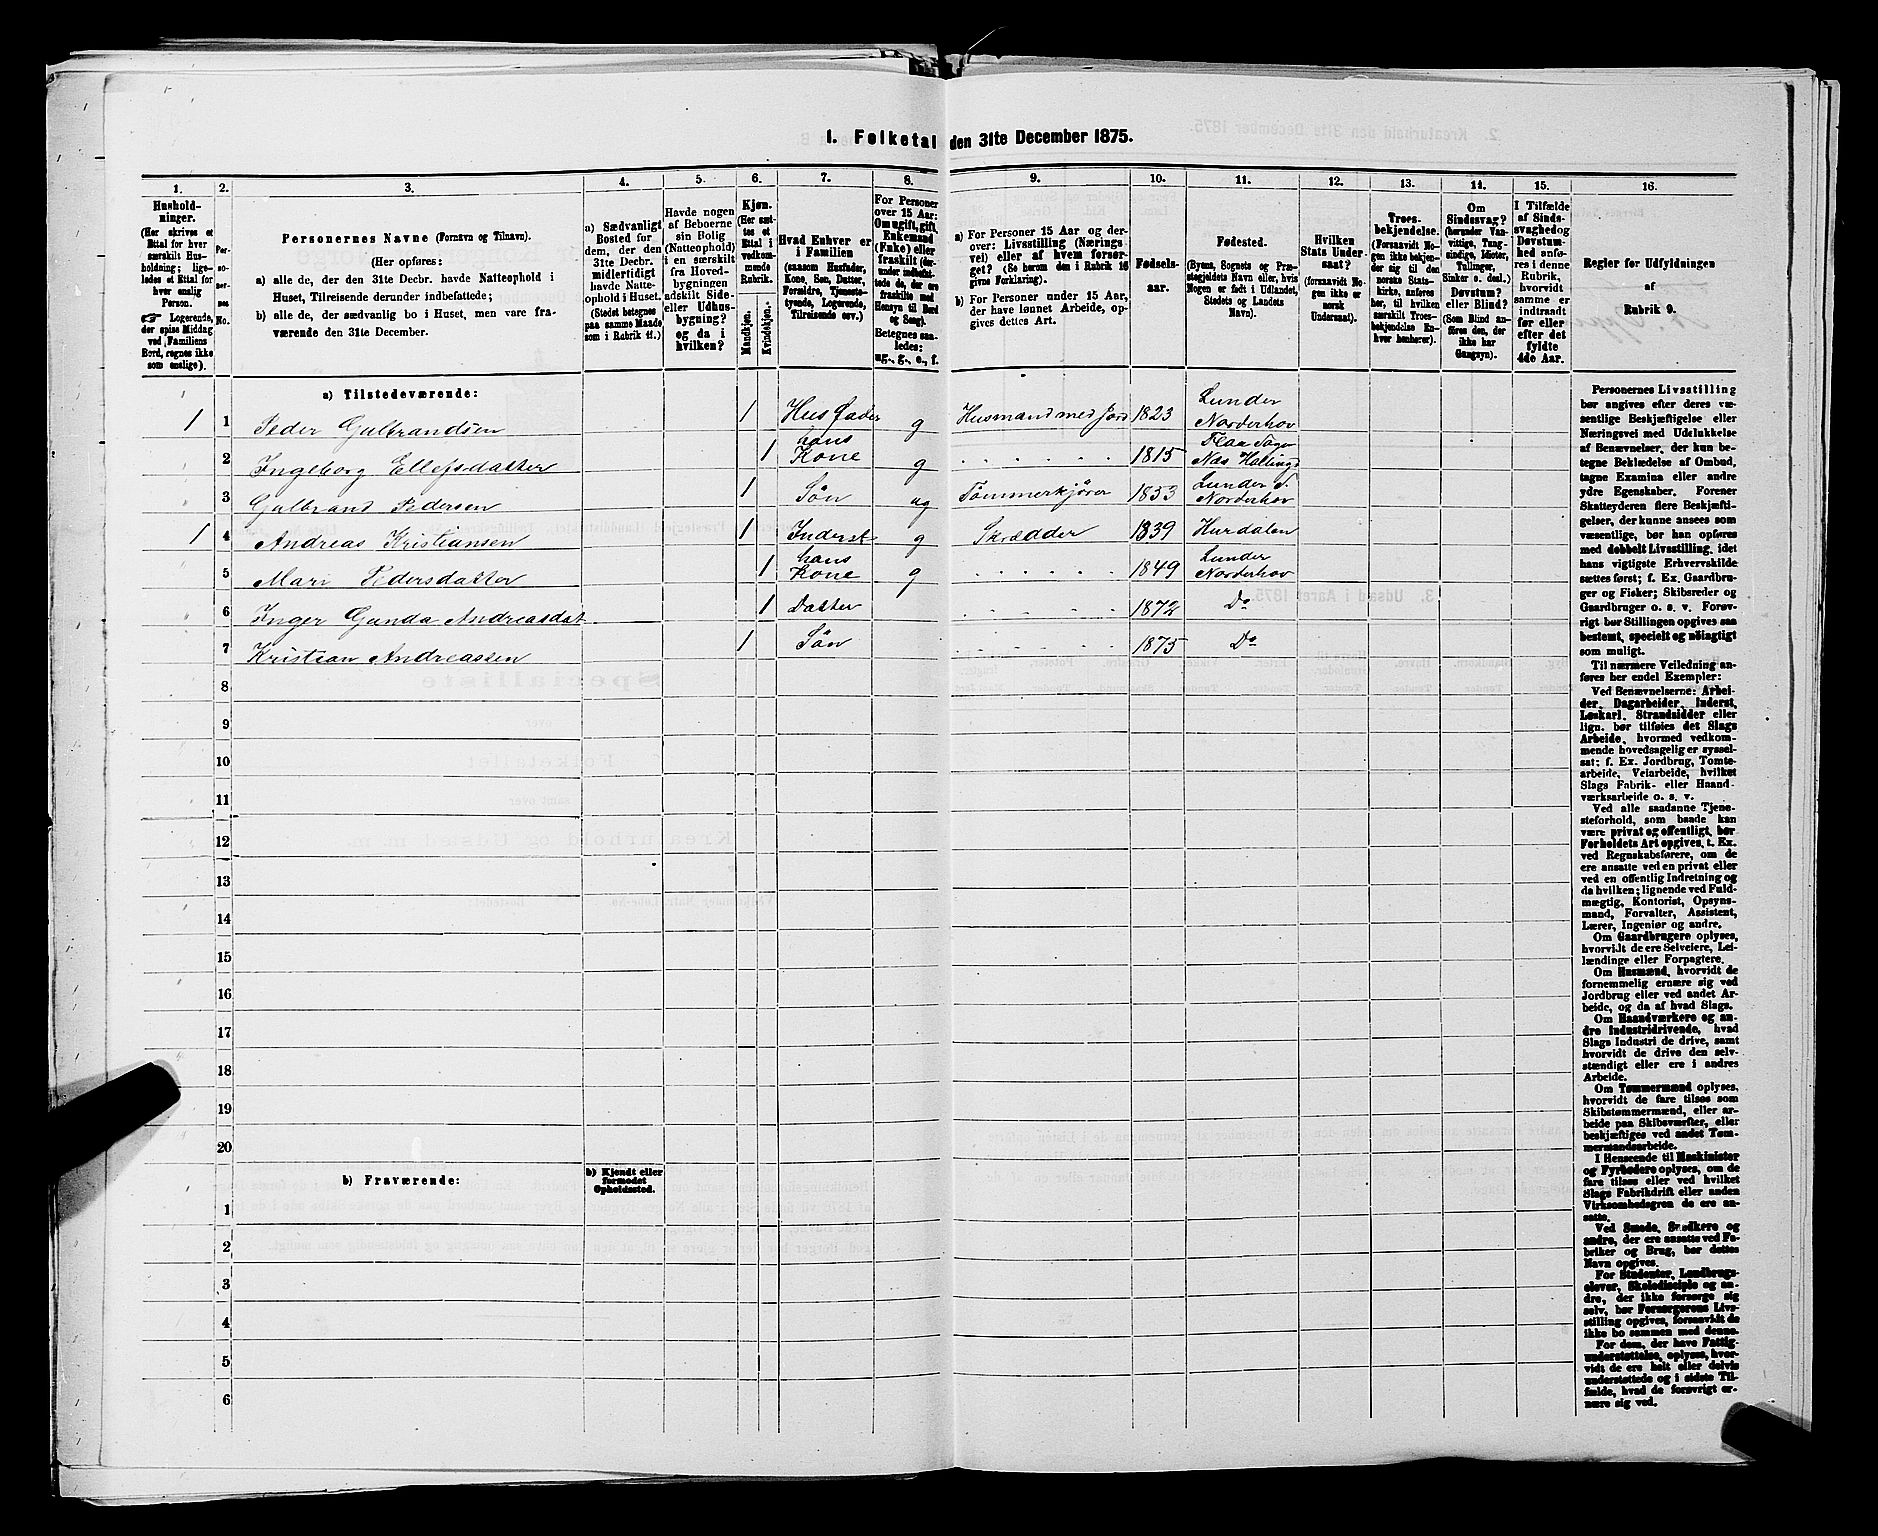 1. Folketal den 31te December 1875.
1. 2. 3. 4. 5. 6. 7. 8. 9. 10. 11. 12. 13. 14. 15. 16.
Hushold-
ninger.
(Her skrives et
Ettal for hver
særskilt Hus-
holdning; lige-
ledes et Ettal for
hver enslig
Person.
☞ Logerende,
der spise Middag
ved Familiens
Bord, regnes ikke
som enslige).
Per-
so-
ner-
nes
No.
Personernes Navne (Fornavn og Tilnavn).
(Her opføres:
a) alle de, der den 31te Decbr. havde Natteophold i
Huset, Tilreisende derunder indbefattede;
b) alle de, der sædvanlig bo i Huset, men vare fra-
værende den 31te December.
a) Sædvanligt
Bosted for
dem, der den
31te Decbr.
midlertidigt
havde Natte-
ophold i Huset.
(Stedet betegnes
paa samme Maade
som i Rubrik 11.)
Havde nogen
af Beboerne
sin Bolig
(Natteophold)
i en særskilt
fra Hoved-
bygningen
adskilt Side-
eller Udhus-
bygning?
og da i
hvilken?
Kjøn.
(Her sæt-
tes et
Ettal i
vedkom-
mende
Rubrik.
Mandkjøn.
Kvindekjøn.
Hvad Enhver er
i Familien
(saasom Husfader,
Kone, Søn, Datter,
Forældre, Tjeneste-
tyende, Logerende,
Tilreisende osv.)
For Personer
over 15 Aar:
Om ugift, gift,
Enkemand
(Enke) eller
fraskilt (der-
under indbefat-
tede de, der ere
fraskilte med
Hensyn til Bord
og Seng).
Betegnes saa-
ledes:
ug., g., e., f.
a) For Personer 15 Aar og der-
over: Livsstilling (Nærings-
vei) eller af hvem forsør-
get? (Se herom den i Rubrik 16
givne Forklaring).
b) For Personer under 15 Aar,
der have lønnet Arbeide, op-
gives dettes Art.
Fødsels-
aar.
Fødested.
(Byens, Sognets og Præ-
stegjeldets Navn eller, hvis
Nogen er født i Udlandet,
Stedets og Landets
Navn).
Hvilken
Stats Under-
saat?
(forsaavidt No-
gen ikke er
norsk
Undersaat).
Troes-
bekjendelse.
(Forsaavidt No-
gen ikke bekjen-
der sig til den
norske Stats-
kirke, anføres
her, til hvilken
særskilt Troes-
bekjendelse En-
hver henhører).
Om
Sindssvag?
(herunder Van-
vittige, Tung-
sindige, Idioter,
Tullinger,
Sinker o. desl.)
Døvstum?
eller Blind?
(Som Blind an-
føres den, der
ikke har
Gangsyn).
I Tilfælde
af Sinds-
svaghed og
Døvstum-
hed anfø-
res i denne
Rubrik,
hvorvidt
samme er
indtraadt
før eller
efter det
fyldte
4de Aar.
Regler for Udfyldningen
af
Rubrik 9.
a) Tilstedeværende:
1 1 Peder Gulbrandsen 1 Husfader g Husmand med Jord 1823 Lunder Norderhov
2 Ingeborg Ellefsdatter 1 hans Kone g 1815 Næs Hallingd
3 Gulbrand Pedersen 1 Søn ug Tømmerkjører 1853 Lunder Norderhov
1 4 Andreas Kristiansen 1 Inderst g Skrædder 1839 Hurdalen
5 Mari Pedersdatter 1 hans Kone g 1849 Lunder Norderhov
6 Inger Gunda Andreasdat 1 Datter 1872 Do
7 Kristian Andreassen 1 Søn 1875 Do
8
9
10
11
12
13
14
15
16
17
18
19
20
b) Fraværende:
b) Kjendt eller
formodet
Opholdssted.
1
2
3
4
5
6
Personernes Livsstilling
bør angives efter deres væ-
sentlige Beskjæftigelse eller
Næringsvei med Udelukkelse
af Benævnelser, der kun be-
tegne Beklædelse af Ombud,
tagne Examina eller andre
ydre Egenskaber. Forener
Skatteyderen flere Beskjæfti-
gelser, der kunne ansees som
væsentlige, bør han opføres
med dobbelt Livsstilling, idet
hans vigtigste Erhvervskilde
sættes først; f. Ex. Gaardbru-
ger og Fisker; Skibsreder og
Gaardbruger o. s. v. Forøv-
rigt bør Stillingen opgives saa
bestemt, specielt og nøiagtigt
som muligt.
Til nærmere Veiledning an-
føres her endel Exempler:
Ved Benævnelserne: Arbei-
der, Dagarbeider, Inderst,
Løskarl, Strandsidder eller
lign. bør tilføies det Slags
Arbeide, hvormed vedkom-
mende hovedsagelig er syssel-
sat; f. Ex. Jordbrug, Tomte-
arbeide, Veiarbeide, hvilket
Slags Fabrik- eller Haand-
værksarbeide o. s. v.
Ved alle saadanne Tjene-
steforhold, som baade kan
være privat og offentligt, bør
Forholdets Art opgives, t. Ex.
ved Regnskabsførere, om de
ere ansatte ved en privat eller
ved en offentlig Indretning og
da hvilken; lignende ved Fuld-
mægtig, Kontorist, Opsyns-
mand, Forvalter, Assistent,
Lærer, Ingeniør og andre.
Om Gaardbrugere oplyses,
hvorvidt de ere Selveiere, Lei-
lændinge eller Forpagtere.
Om Husmænd, hvorvidt de
fornemmelig ernære sig ved
Jordbrug eller ved andet Ar-
beide, og da af hvad Slags.
Om Haandværkere og an-
dre Industridrivende, hvad
Slags Industri de drive, samt
hvorvidt de drive den selv-
stændigt eller ere i andres
Arbeide.
Om Tømmermænd oplyses,
hvorvidt de fare tilsøs som
Skibstømmermænd, eller ar-
beide paa Skibsværfter, eller
beskjæftiges ved andet Tøm-
mermandsarbeide.
I Henseende til Maskinister
og Fyrbødere oplyses, om de
fare tilsøs eller ved hvilket
Slags Fabrikdrift eller anden
Virksomhedsgren de ere an-
satte.
Ved Smede, Snedkere og
andre, der ere ansatte ved Fa-
briker og Brug, bør dettes
Navn opgives.
For Studenter, Landbrugs-
elever, Skoledisciple og an-
dre, der ikke forsørge sig
selv, bør Forsørgerens Livs-
stilling opgives, forsaavidt de
ikke bo sammen med denne.
For dem, der have Fattig-
understøttelse, oplyses, hvor-
vidt de ere helt eller delvis
understøttede og i sidste Til-
fælde, hvad de forøvrigt er-
nære sig ved.